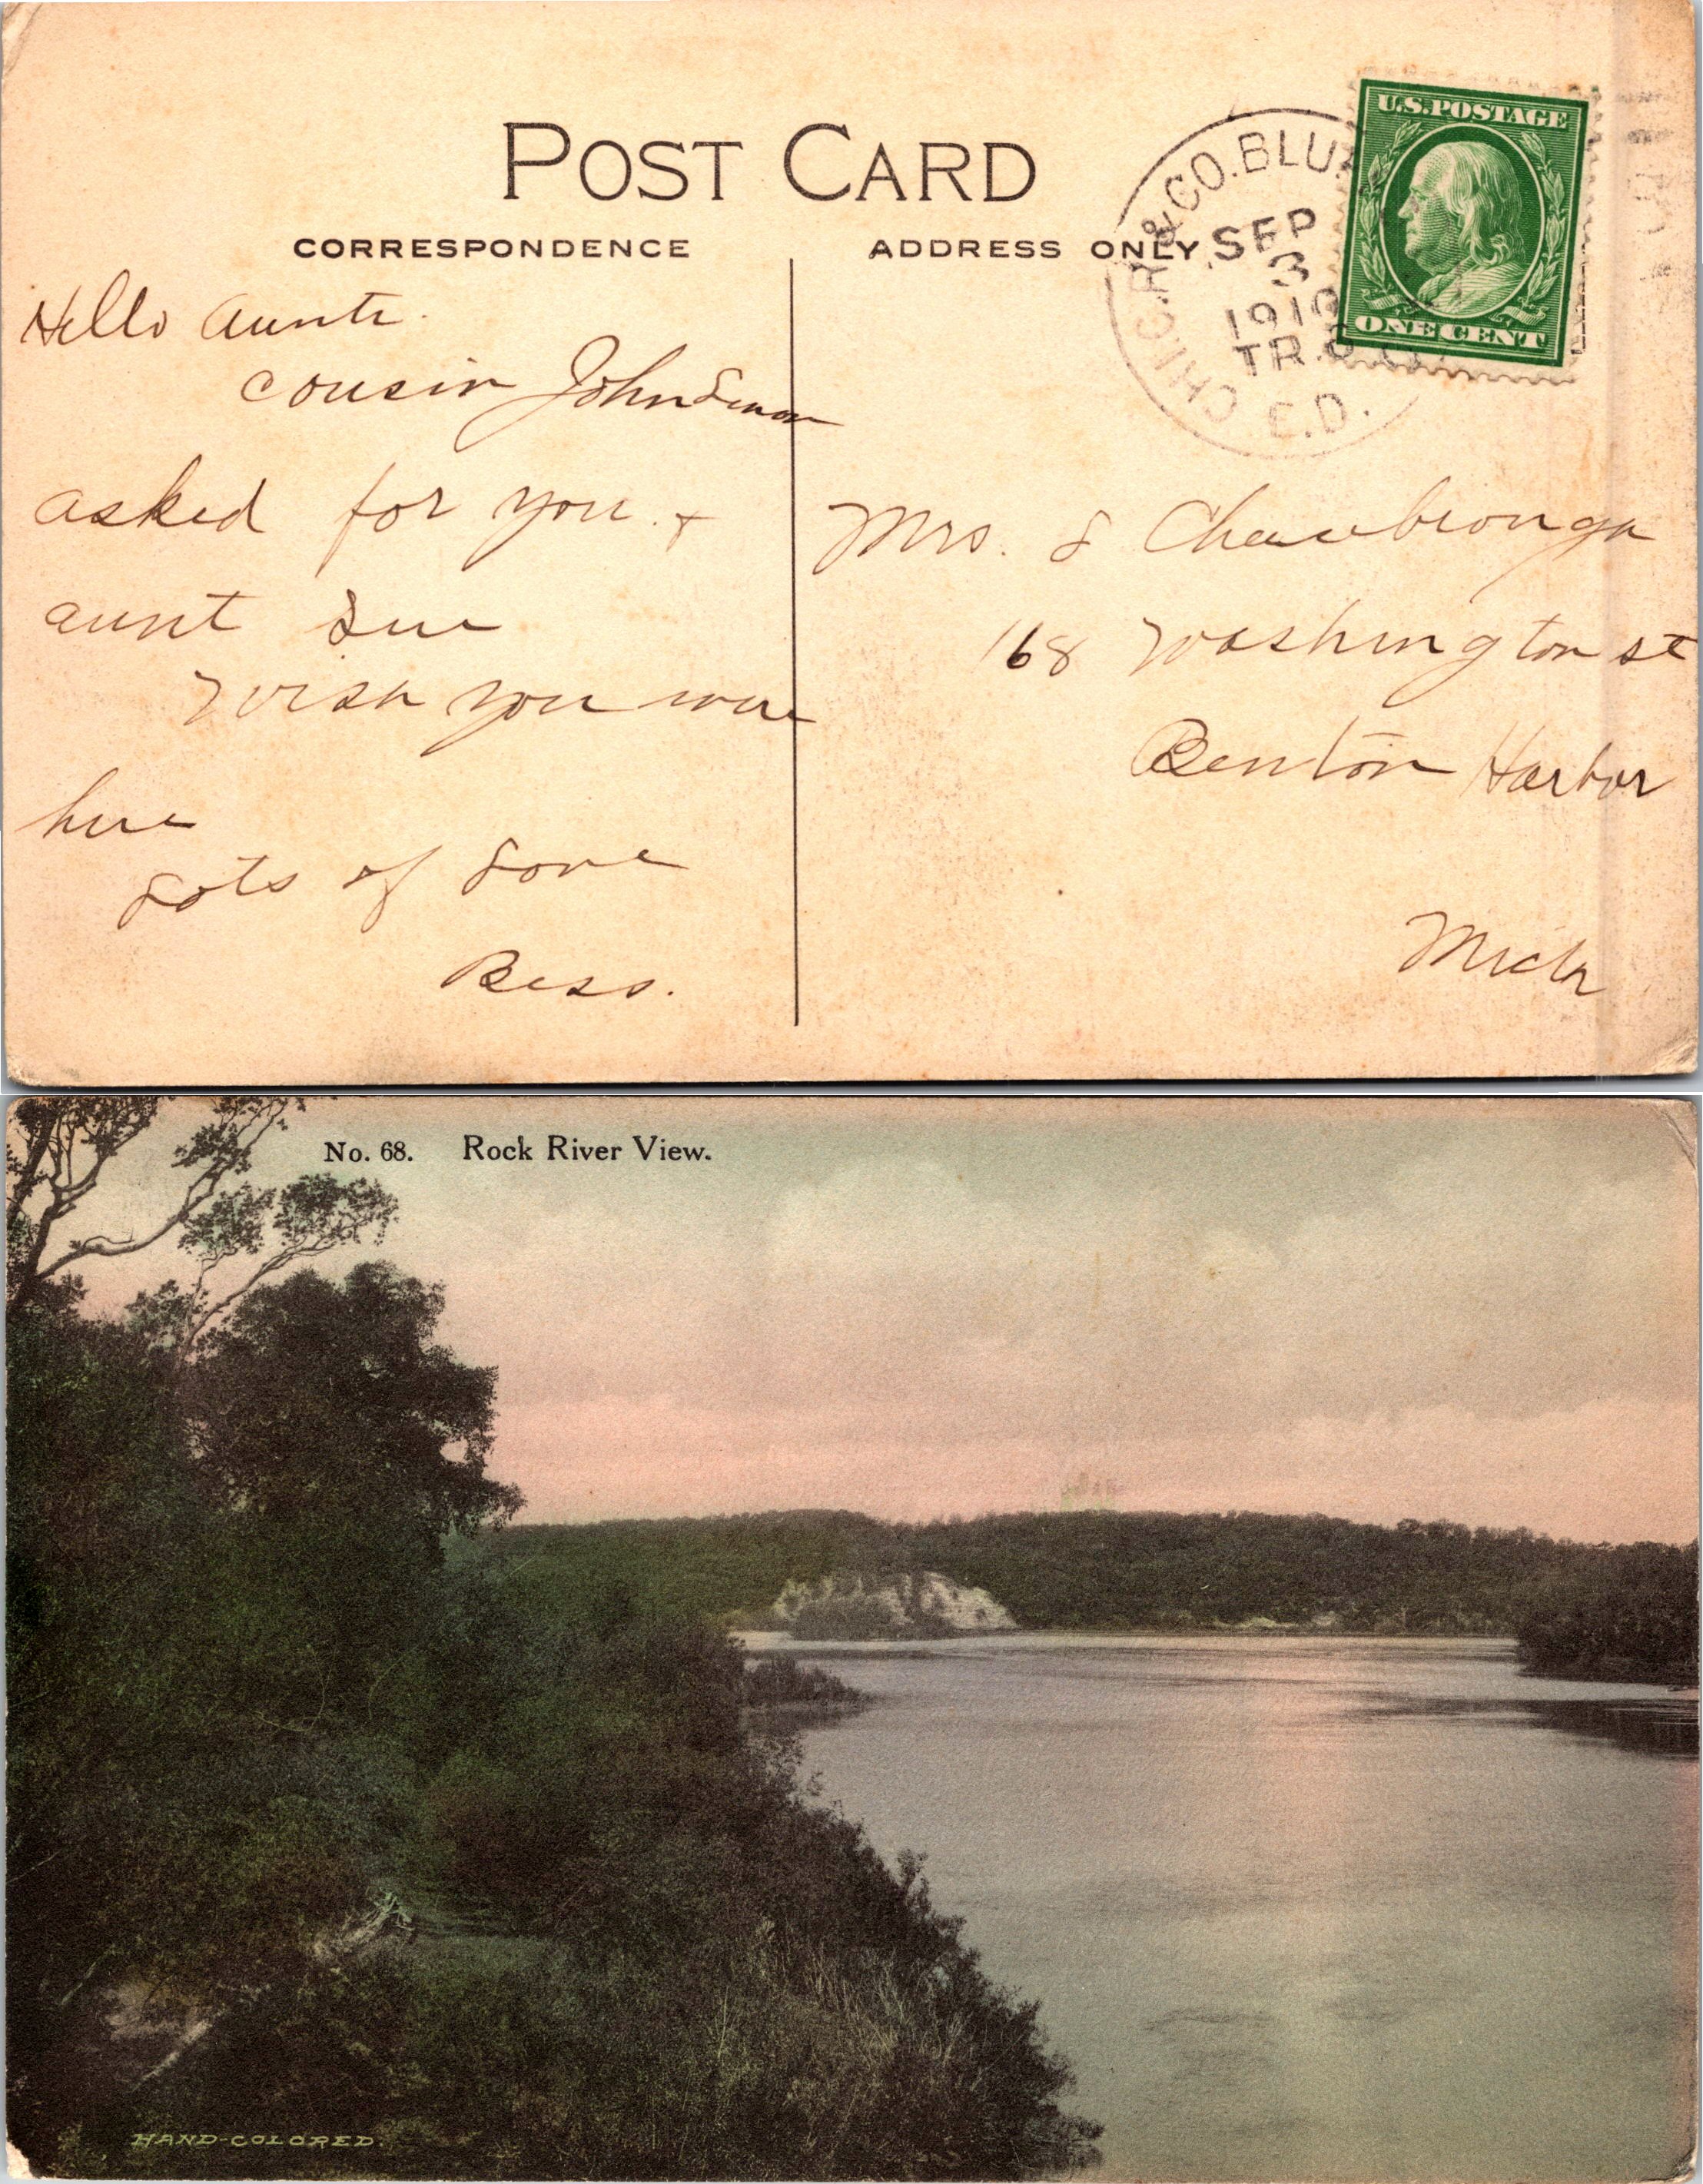 POST CARD
CORRESPONDENCE
ADDRESS ONLY
CHIC.R.&CO.BLU
SEP
3
1910
TR.
E.D.
U.S.POSTAGE
ONE CENT
Hello Aunte.
cousin John
asked for you. +
aunt Sue
Wish you were
here
Lots of Love
Bess.
Mrs.
168 Washington st
Benton Harbor
Mich
No. 68. Rock River View.
HAND-COLORED.